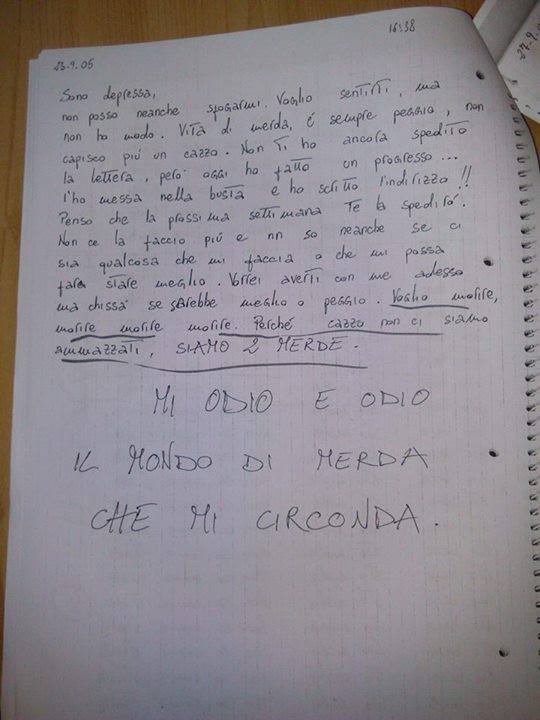 23-9.05
16:38
Sono depressa,
non posso neanche sfogarmi. Voglio sentirti, ma
non ho modo. Vita di merda, é sempre peggio, non
capisco piú un cazzo. Non ti ho ancora spedito
la lettera, peró oggi ho fatto un progresso...
l'ho messa nella busta e ho scritto l'indirizzo!!
Penso che la prossima settimana te la spediró.
Non ce la faccio piú e nn so neanche se ci
sia qualcosa che mi faccia o che mi possa
fare stare meglio. Vorrei averti con me adesso
ma chissá se sarebbe meglio o peggio. Voglio morire,
morire morire morire. Perché cazzo non ci siamo
ammazzati, SIAMO 2 MERDE.
MI ODIO E ODIO
IL MONDO DI MERDA
CHE MI CIRCONDA.
27-9.